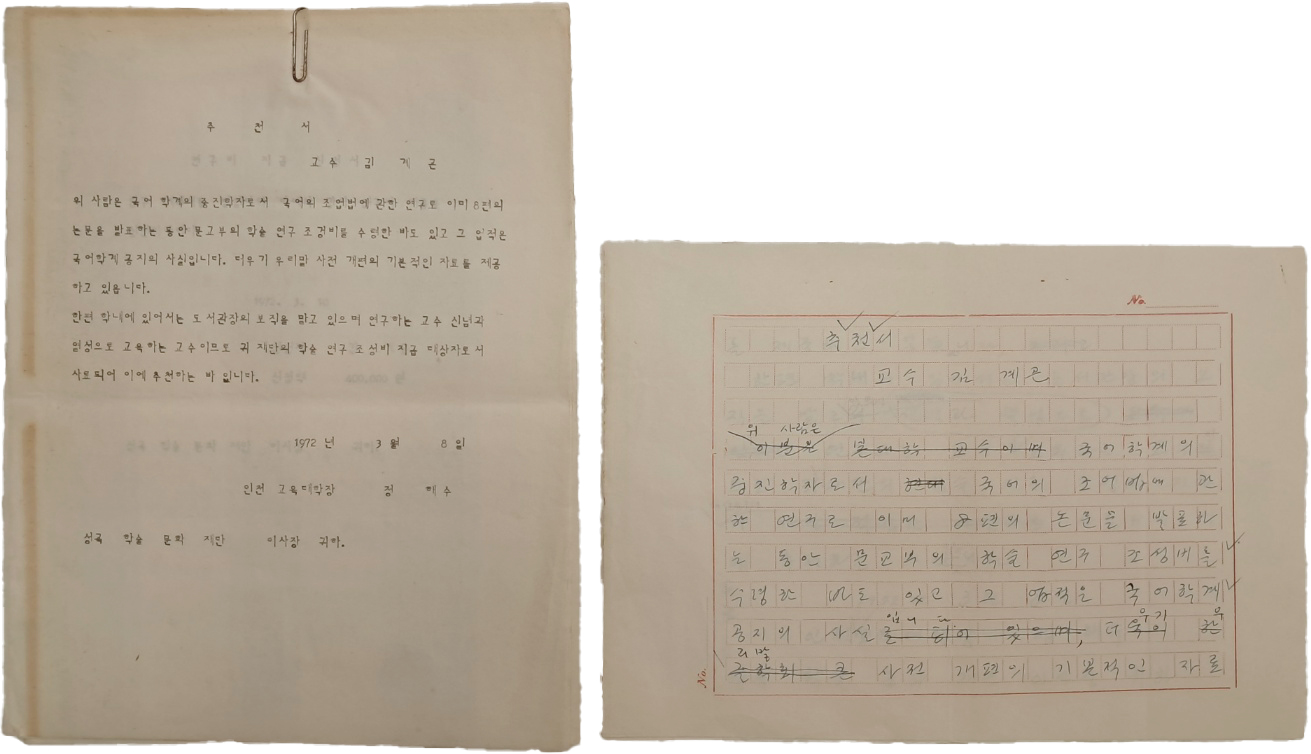 추 천 서
교수 김 계 곤
위 사람은 국어 학계의 중진학자로서 국어의 조어법에 관한 연구로 이미 8편의
논문을 발표하는 동안 문교부의 학술 연구 조성비를 수령한 바도 있고 그 업적은
국어학계 공지의 사실입니다. 더우기 우리말 사전 개편의 기본적인 자료를 제공
하고 있읍니다.
한편 학내에 있어서는 도서관장의 보직을 맡고 있으며 연구하는 교수 신념과
열성으로 교육하는 교수이므로 귀 재단의 학술 연구 조성비 지급 대상자로서
사료되어 이에 추천하는 바 입니다.
1972 년 3 월 8 일
인천 교육대학장 정 해 수
성곡 학술 문화 재단 이사장 귀하.
No.
추천서
교수 김 계곤
위 사람은
이분은 본대학 교수이며 국어학계의
중진학자로서 국어의 조어법에 관
한 연구로 이미 8편의 논문을 발표하
는 동안 문교부의 학술 연구 조성비를
수령한 바도 있고 그 업적은 국어학계
입니다 우기 우
공지의 사실로 되어 있으며, 더욱이 한
리말
글학회 큰 사전 개편의 기본적인 자료
No.